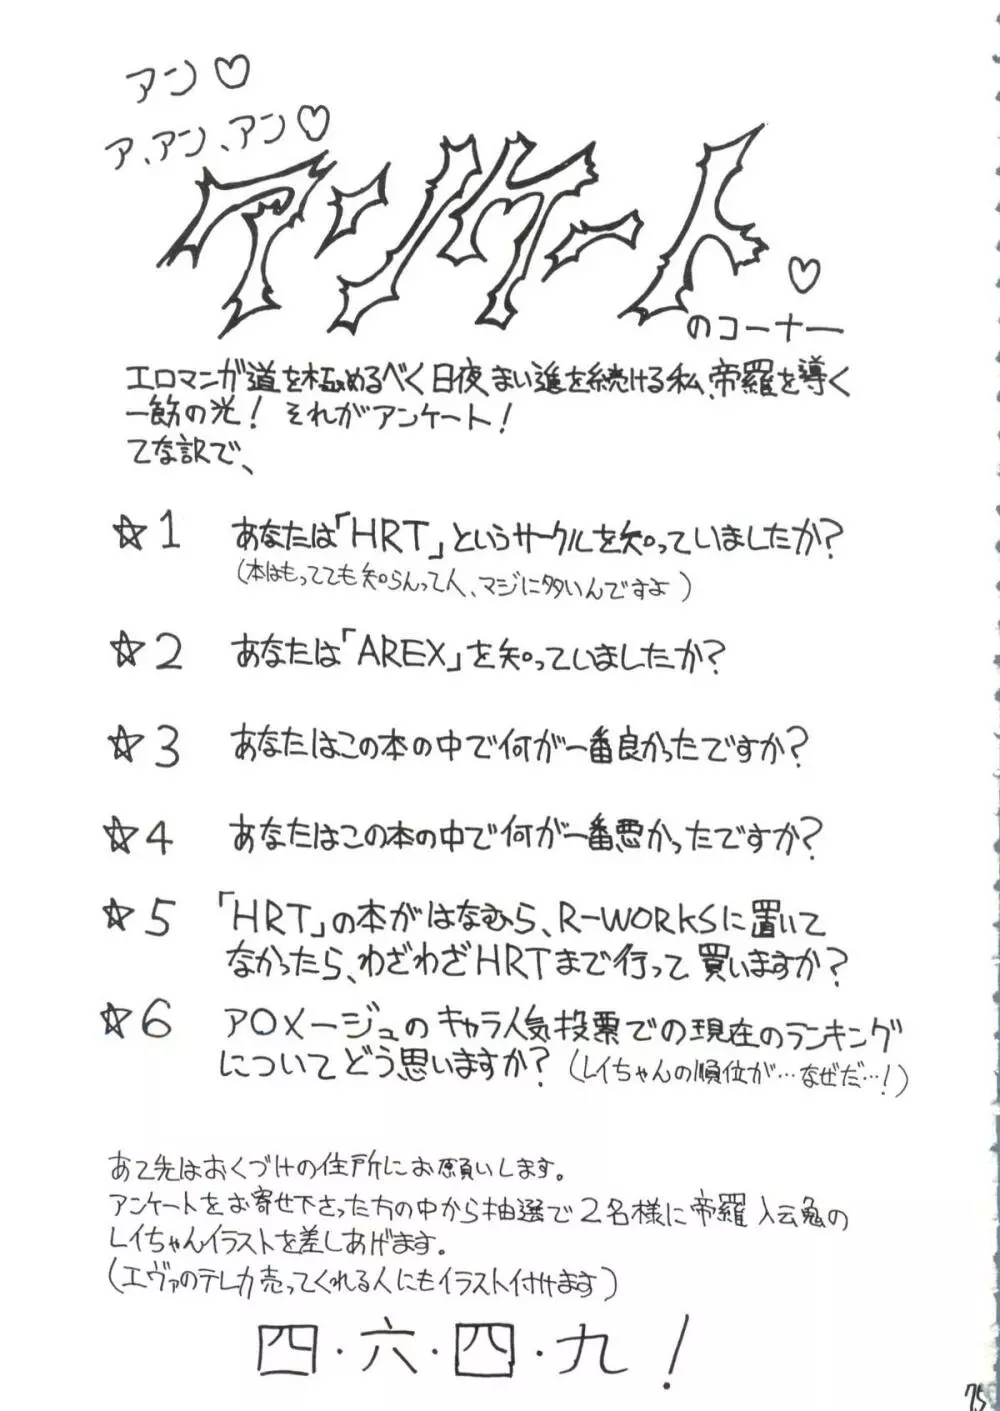 アン♡
ア、アン、アン♡
アンケート♡
のコーナー
エロマンガ道を極めるべく日夜まい進を続ける私、帝羅を導く
一筋の光! それがアンケート!
てな訳で、
☆1 あなたは「HRT」というサークルを知っていましたか?
(本はもってても知らんって人、マジに多いんですよ)
☆2 あなたは「AREX」を知っていましたか?
☆3 あなたはこの本の中で何が一番良かったですか?
☆4 あなたはこの本の中で何が一番悪かったですか?
☆5 「HRT」の本がはなむら、R-WORKSに置いて
なかったら、わざわざHRTまで行って買いますか?
☆6 ア○メージュのキャラ人気投票での現在のランキング
についてどう思いますか? (レイちゃんの順位が…なぜだ…!)
あて先はおくづけの住所にお願いします。
アンケートをお寄せ下さった方の中から抽選で2名様に帝羅入云鬼の
レイちゃんイラストを差しあげます。
(エヴァのテレカ売ってくれる人にもイラスト付けます)
四・六・四・九!
75